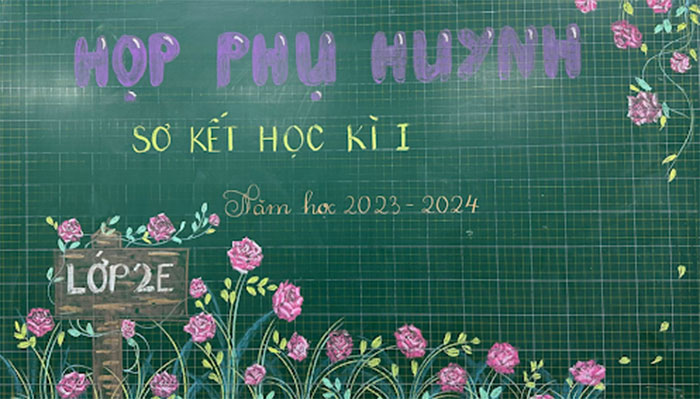 HỌP PHỤ HUYNH
SƠ KẾT HỌC KÌ I
Năm học 2023-2024
LỚP 2E